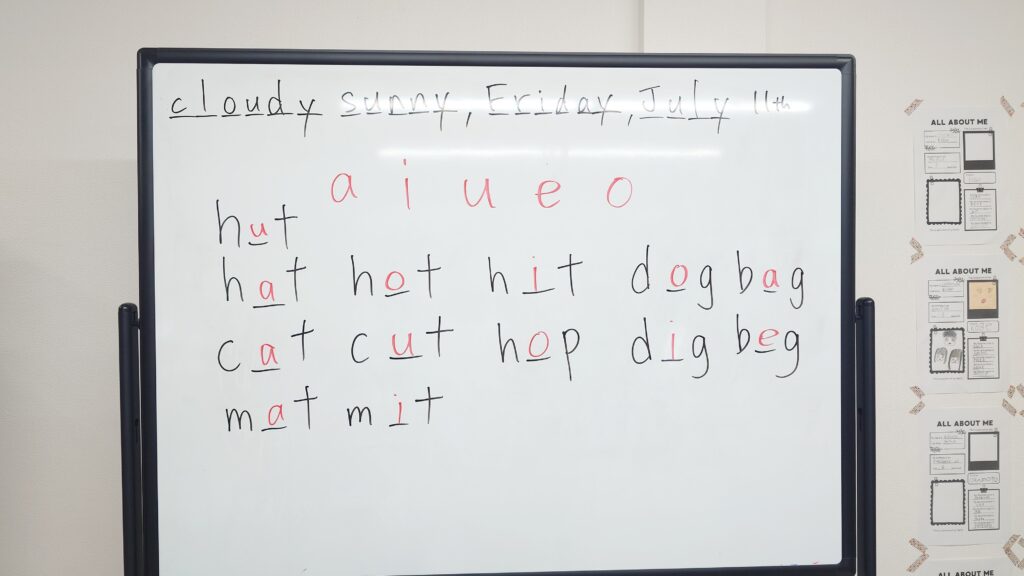 cloudy sunny, Friday, July 11th
a i u e o
hut
hat hot hit dog bag
cat cut hop dig beg
mat mit
ALL ABOUT ME
ALL ABOUT ME
ALL ABOUT ME
ALL ABOUT ME